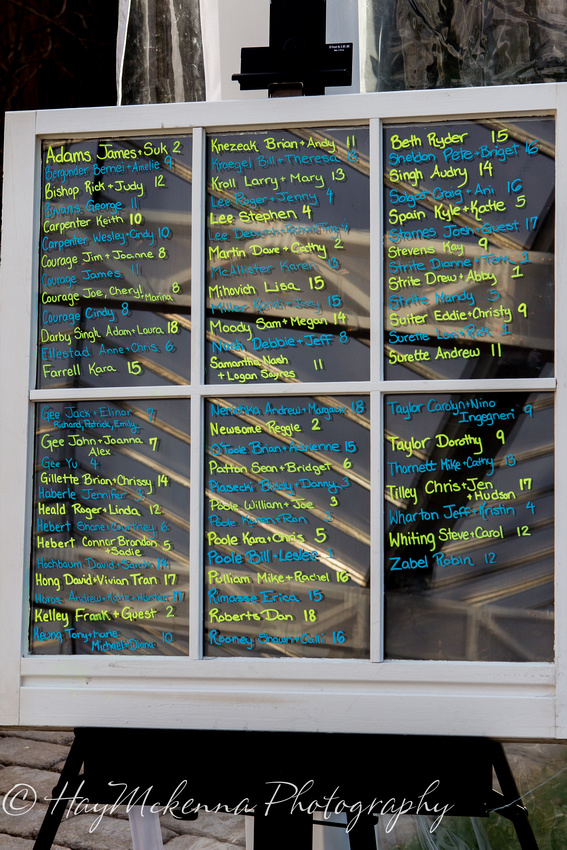 Adams James + Suk 2
Bergunder Bernei + Amelie 9
Bishop Rick + Judy 12
George 11
Carpenter Keith 10
Carpenter Wesley + Cindy 10
Courage Jim + Joanne 8
Courage James 11
Courage Joe, Cheryl + Marina 8
Courage Cindy 8
Darby Singh, Adam + Laura 18
Ellestad Anne + Chris 6
Farrell Kara 15
Knezeak Brian + Andy 11
Kroegel Bill + Theresa
Kroll Larry + Mary 13
Lee Roger + Jenny 4
Lee Stephen 4
Lee
Martin Dave + Cathy 2
McAllister Karen
Mihovich Lisa 15
Miller
Moody Sam + Megan 14
Nash Debbie + Jeff 8
Samantha Nash
+ Logan Sayres 11
Beth Ryder 15
Sheldon Pete + Bridget 16
Singh Audry 14
Craig + Ani 16
Spain Kyle + Katie 5
Starnes Josh + Guest 17
Stevens Kay 9
Strite Dianne + Tom 3
Strite Drew + Abby 1
Strite Mandy 3
Suiter Eddie + Christy 9
Surette Lori + Rich 1
Surette Andrew 11
Gee Jack + Elinor 7
Richard, Patrick, Emily
Gee John + Joanna 7
Alex
Gee Yu 4
Gillette Brian + Chrissy 14
Haberle Jennifer
Heald Roger + Linda 12
Hebert Shane + Courtney 6
Hebert Connor Brandon 5
+ Sadie
Hochbaum David + Sarah 14
Hong David + Vivian Tran 17
Andrew + 17
Kelley Frank + Guest 2
Keung Tony + Marie
Michael + Diana 10
Andrew + 18
Newsome Reggie 2
O'Toole Brian + Adrienne 15
Patton Sean + Bridget 6
Piasecki Buddy + Donny 3
Poole William + Joe 3
Poole Karen + Ron 3
Poole Kara + Chris 5
Poole Bill + Leslee 1
Pulliam Mike + Rachel 16
Rimasse Erica 15
Roberts Dan 18
Rooney Shawn + Calli 16
Taylor Carolyn + Nino
Ingegneri 9
Taylor Dorothy 9
Thornett Mike + Cathy 13
Tilley Chris + Jen 17
+ Hudson
Wharton Jeff + Kristin 4
Whiting Steve + Carol 12
Zabel Robin 12
© HayMckenna Photography